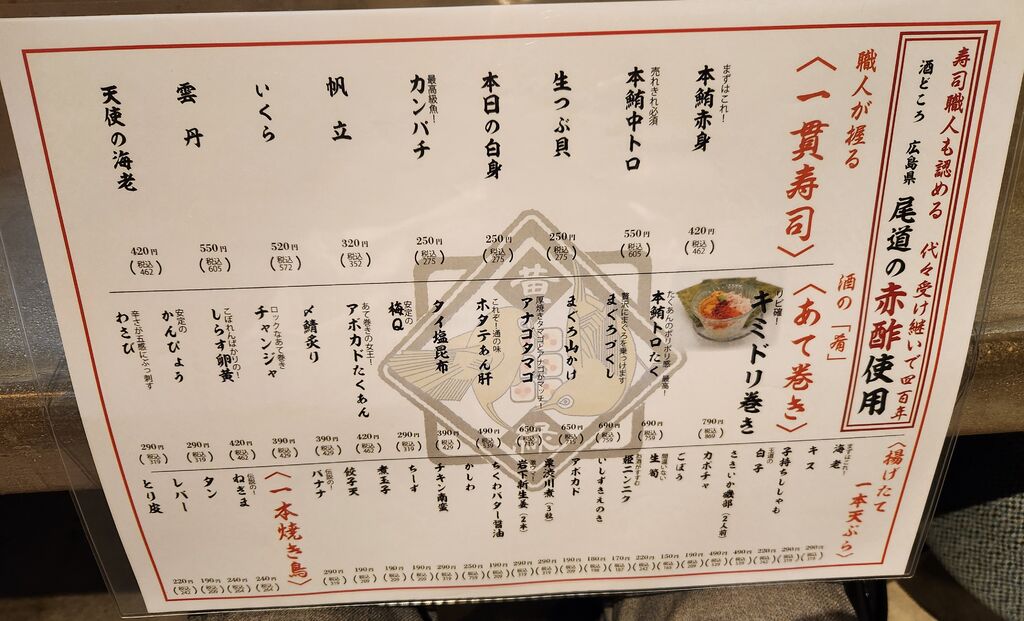 寿司職人も認める 代々受け継いで四百年
酒どころ 広島県 尾道の赤酢使用
職人が握る
〈一貫寿司〉
まずはこれ!
本鮪赤身
420円
(税込462)
売れきれ必須
本鮪中トロ
550円
(税込605)
生つぶ貝
250円
(税込275)
本日の白身
250円
(税込275)
最高級魚!
カンパチ
250円
(税込275)
帆立
320円
(税込352)
いくら
520円
(税込572)
雲丹
550円
(税込605)
天使の海老
420円
(税込462)
酒の「肴」
〈あて巻き〉
リピ確!
キミドリ巻き
790円
(税込869)
たくあんのポリポリ感 最高!
本鮪トロたく
690円
(税込759)
贅沢にまぐろを乗っけます
まぐろづくし
690円
(税込759)
まぐろ山かけ
650円
(税込715)
厚焼きタマゴとアナゴがマッチ!
アナゴタマゴ
650円
(税込715)
これぞ!通の味
ホタテあん肝
490円
(税込539)
タイ塩昆布
390円
(税込429)
安定の
梅Q
290円
(税込319)
あて巻きの女王!
アボカドたくあん
420円
(税込462)
〆鯖炙り
390円
(税込429)
ロックなあて巻き
チャンジャ
390円
(税込429)
こぼれんばかりの!
しらす卵黄
420円
(税込462)
安定の
かんぴょう
290円
(税込319)
辛さが五感にぶっ刺す
わさび
290円
(税込319)
〈揚げたて
一本天ぷら〉
まずはこれ!
海老
290円
キス
290円
子持ちししゃも
220円
王道の
白子
490円
ささいか磯部(2人前)
490円
カボチャ
190円
ごぼう
150円
間違いない
生筍
220円
お酒がすすむ
姫ニンニク
170円
いしずきえのき
180円
アボカド
190円
栗渋川煮(3粒)
290円
岩下新生姜(2本)
290円
ちくわバター醤油
190円
かしわ
250円
チキン南蛮
290円
ちーず
190円
煮玉子
190円
餃子天
190円
伝説の!
バナナ
290円
〈一本焼き鳥〉
伝説の!
ねぎま
240円
タン
240円
レバー
190円
とり皮
220円